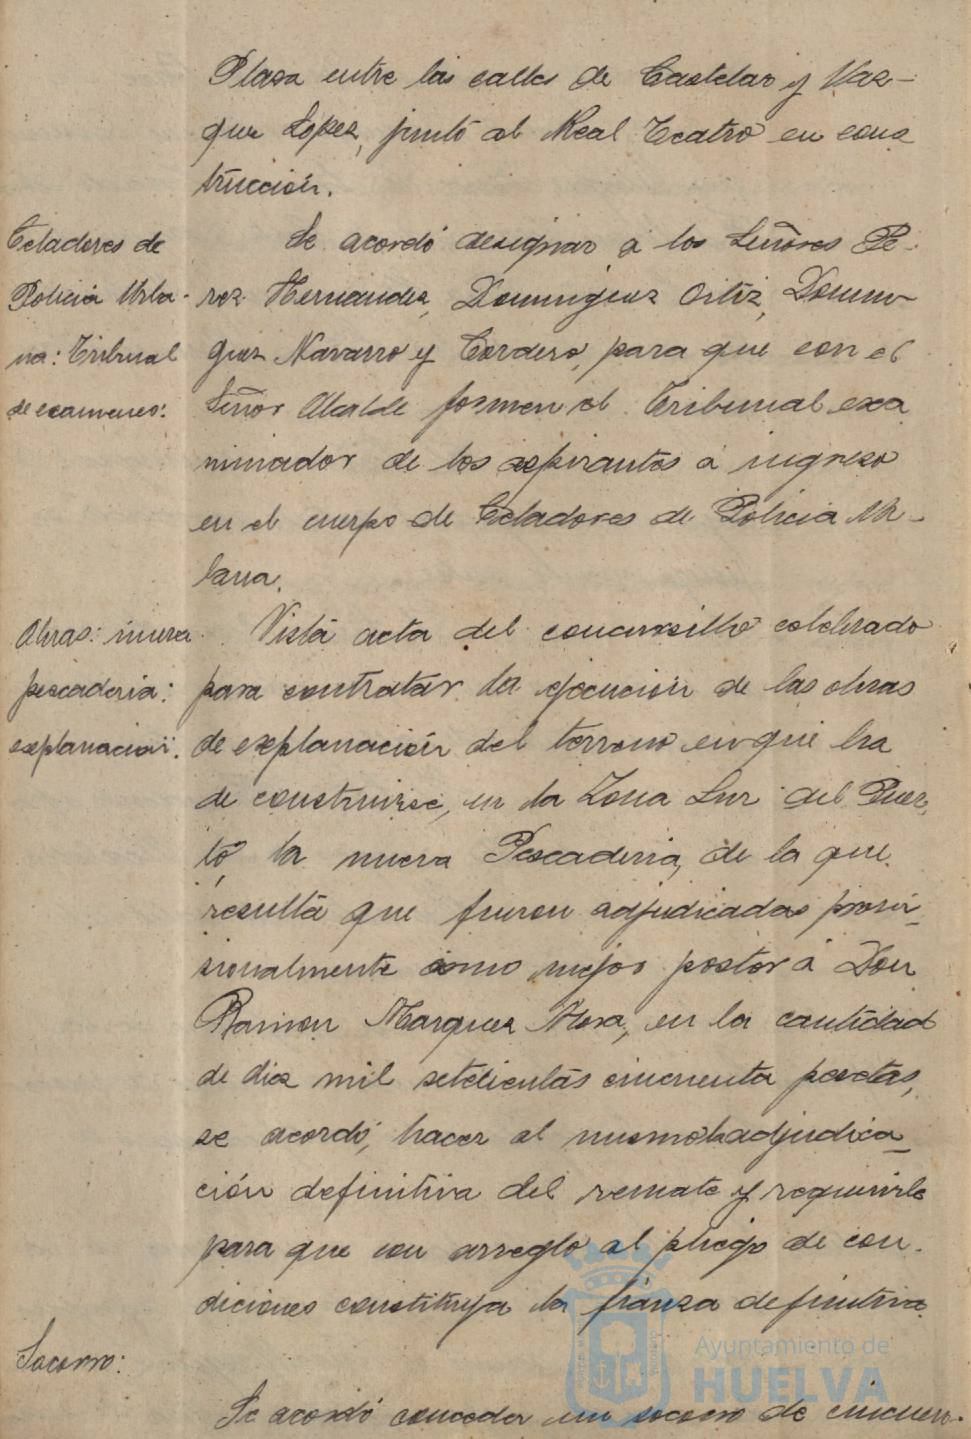 Plaza entre las calles de Castelar y Vaz-
quez López, junto al Real Teatro en cons
trucción.
Celadores de
Policia Urba-
na: Tribunal
de examenes:
Se acordó designar á los Señores Pe-
rez Hernandez, Dominguez Ortiz, Domin-
guez Navarro y Cordero, para que con el
Señor Alcalde formen el Tribunal exa
minador de los aspirantes á ingreso
en el cuerpo de Celadores de Policia Ur-
bana.
Obras: nueva
pescaderia:
explanación.
Vista acta del concursillo celebrado
para contratar la ejecución de las obras
de explanación del terreno en que ha
de construirse, en la Zona Sur del Puer-
to, la nueva Pescaderia, de la que
resulta que fueron adjudicadas provi-
sionalmente como mejor postor á Don
Ramon Marquez, en la cantidad
de diez mil setecientas cincuenta pesetas,
se acordó, hacer al mismo la adjudica-
ción definitiva del remate y requerirle
para que con arreglo al pliego de con-
diciones constituya la fianza definitiva
Socorro:
Se acordó conceder un socorro de cincuen-
Ayuntamiento de
HUELVA